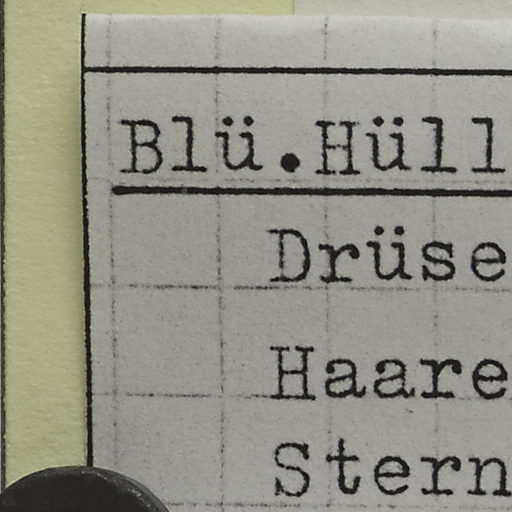 Blü.Hüll
Drüse
Haare
Stern